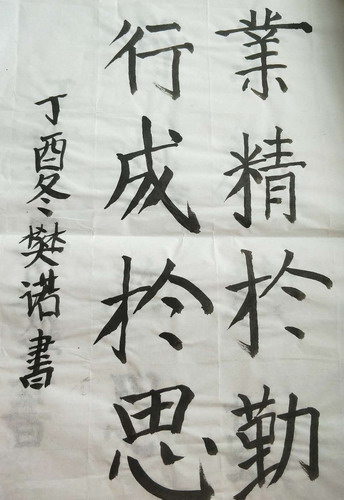 業精於勤
行成於思
丁酉冬樊诺書